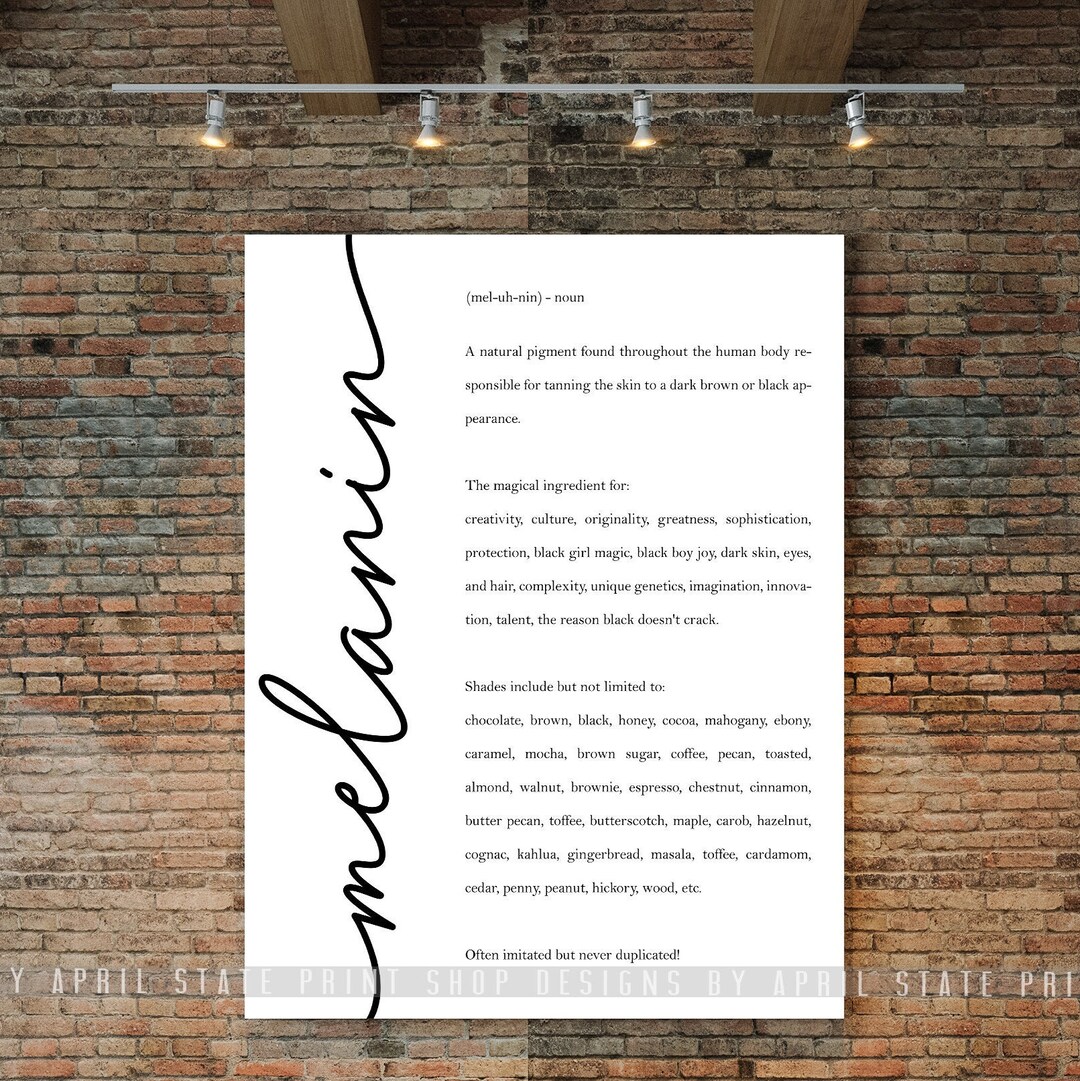 melanin
(mel-uh-nin) - noun
A natural pigment found throughout the human body re-
sponsible for tanning the skin to a dark brown or black ap-
pearance.
The magical ingredient for:
creativity, culture, originality, greatness, sophistication,
protection, black girl magic, black boy joy, dark skin, eyes,
and hair, complexity, unique genetics, imagination, innova-
tion, talent, the reason black doesn't crack.
Shades include but not limited to:
chocolate, brown, black, honey, cocoa, mahogany, ebony,
caramel, mocha, brown sugar, coffee, pecan, toasted,
almond, walnut, brownie, espresso, chestnut, cinnamon,
butter pecan, toffee, butterscotch, maple, carob, hazelnut,
cognac, kahlua, gingerbread, masala, toffee, cardamom,
cedar, penny, peanut, hickory, wood, etc.
Often imitated but never duplicated!
Y APRIL STATE PRINT SHOP DESIGNS BY APRIL STATE PRI